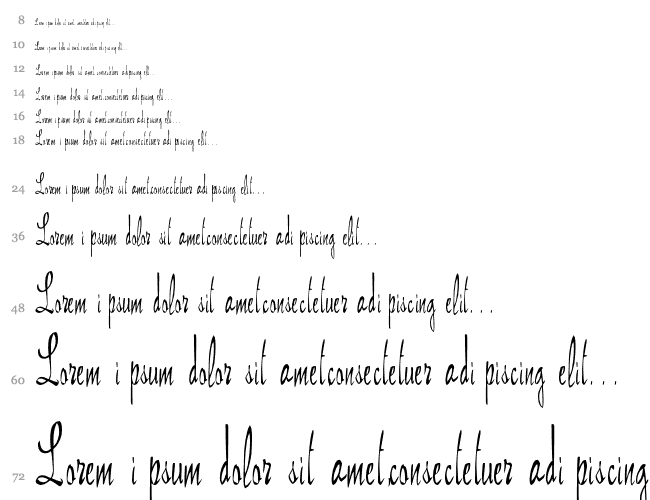 8 Lorem ipsum dolor sit amet, consectetuer adipiscing elit...
10 Lorem ipsum dolor sit amet,consectetuer adipiscing elit...
12 Lorem ipsum dolor sit amet,consectetuer adipiscing elit...
14 Lorem ipsum dolor sit amet,consectetuer adipiscing elit...
16 Lorem ipsum dolor sit amet,consectetuer adipiscing elit...
18 Lorem ipsum dolor sit amet,consectetuer adipiscing elit...
24 Lorem ipsum dolor sit amet,consectetuer adipiscing elit...
36 Lorem ipsum dolor sit amet,consectetuer adipiscing elit...
48 Lorem ipsum dolor sit amet,consectetuer adipiscing elit...
60 Lorem ipsum dolor sit amet,consectetuer adipiscing elit...
72 Lorem ipsum dolor sit amet,consectetuer adipiscing